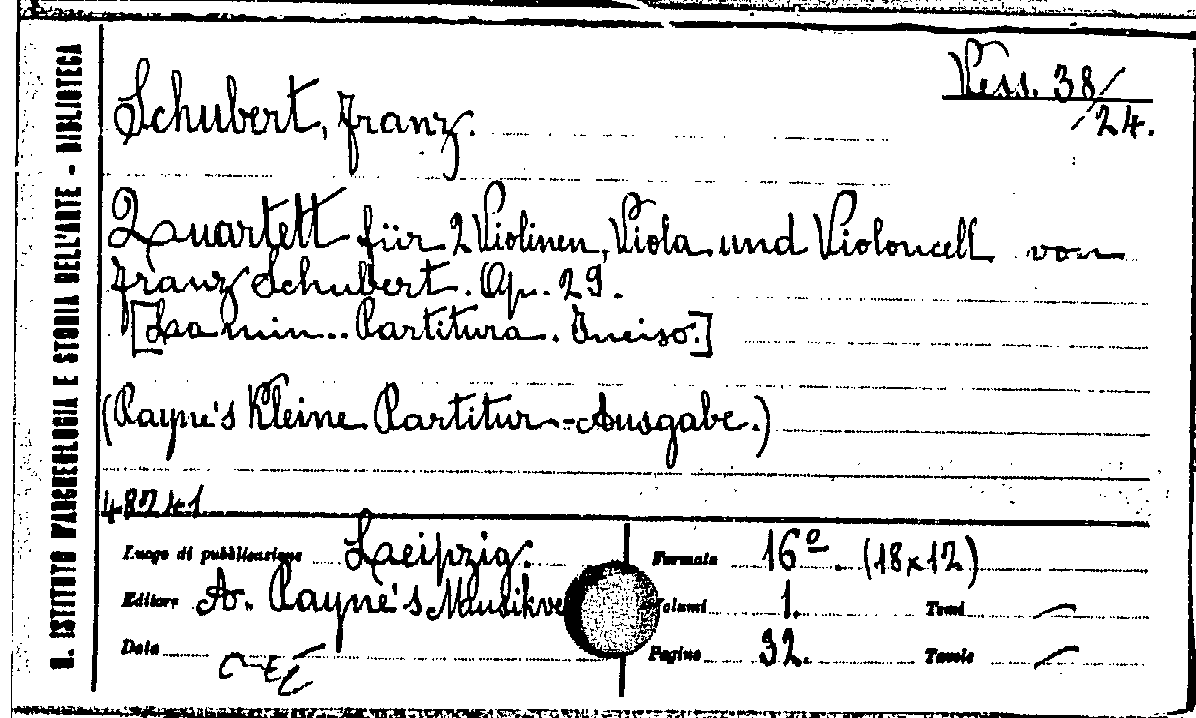 R. ISTITUTO D'ARCHEOLOGIA E STORIA DELL'ARTE - BIBLIOTECA
Vess. 38/24.
Schubert, Franz.
Quartett für 2 Violinen, Viola und Violoncell von
Franz Schubert. Op. 29.
[La min.. Partitura. Inciso.]
(Payne's Kleine Partitur-Ausgabe.)
48741
Luogo di pubblicazione Leipzig. Formato 16º. (18x12)
Editore A. Payne's Musikve Volumi 1. Tomi —
Data Pagine 32. Tavole —